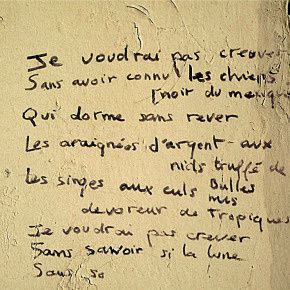 Je voudrai pas crever
Sans avoir connu les chiens
noir du mexique
Qui dorme sans rever
Les araignées d'argent aux
nids truffé de
Bulles
Les singes aux culs nus
devoreur de Tropiques
Je voudrai pas crever
Sans savoir si la lune
Sous so